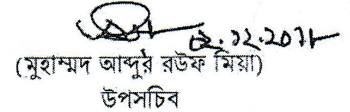 ০২.১২.২০১৮
(মুহাম্মদ আব্দুর রউফ মিয়া)
উপসচিব